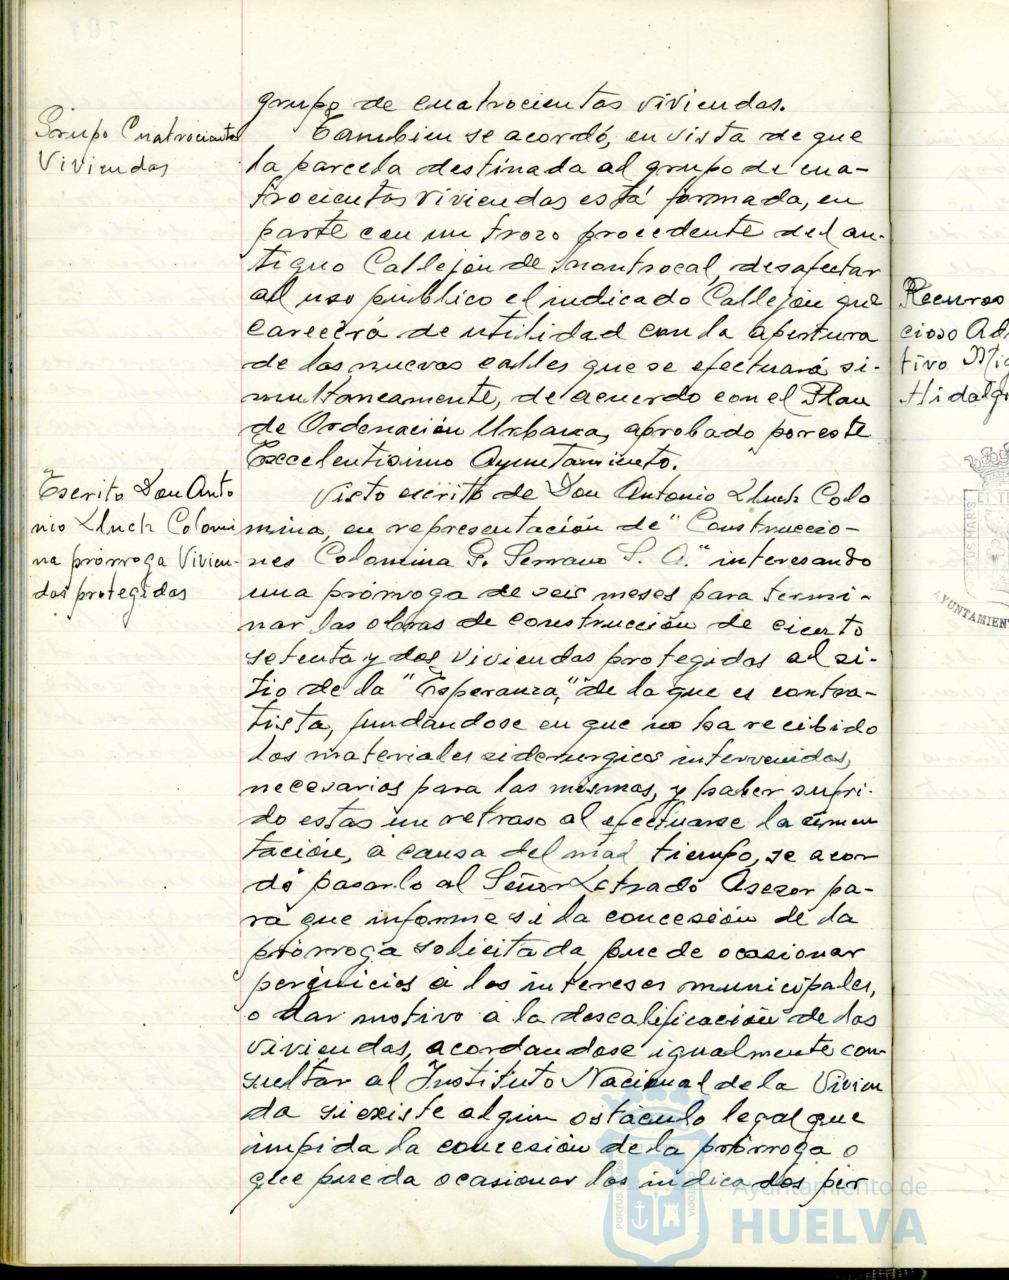 Grupo Cuatrocientas
Viviendas
grupo de cuatrocientas viviendas.
Tambien se acordó, en vista de que
la parcela destinada al grupo de cua-
trocientas viviendas está formada, en
parte con un trozo procedente del an-
tiguo Callejón de Montrocal, desafectar
al uso público el indicado Callejón que
carecerá de utilidad con la apertura
de las nuevas calles que se efectuará si-
multaneamente, de acuerdo con el Plan
de Ordenación Urbana, aprobado por este
Excelentisimo Ayuntamiento.
Escrito Don Anto
nio Lluch Colomi
na prórroga Vivien-
das protegidas
Visto escrito de Don Antonio Lluch Colo
mina, en representación de "Construccio-
nes Colomina G. Serrano S. A." interesando
una prórroga de seis meses para termi-
nar las obras de construcción de ciento
setenta y dos viviendas protegidas al si-
tio de la "Esperanza," de la que es contra-
tista, fundandose en que no ha recibido
los materiales siderurgicos intervenidos,
necesarios para las mismas, y haber sufri-
do estas un retraso al efectuarse la cimen
tación, a causa del mal tiempo, se acor
dó pasarlo al Señor Letrado Asesor pa-
ra que informe si la concesión de la
prórroga solicitada puede ocasionar
perjuicios a los intereses municipales,
o dar motivo a la descalificación de las
viviendas, acordandose igualmente con-
sultar al Instituto Nacional de la Vivien
da si existe algún ostáculo legal que
impida la concesión de la prórroga o
que pueda ocasionar los indicados per
Recurso
cioso Ad
tivo Mig
Hidalg
AYUNTAMIEN
Ayuntamiento de
HUELVA